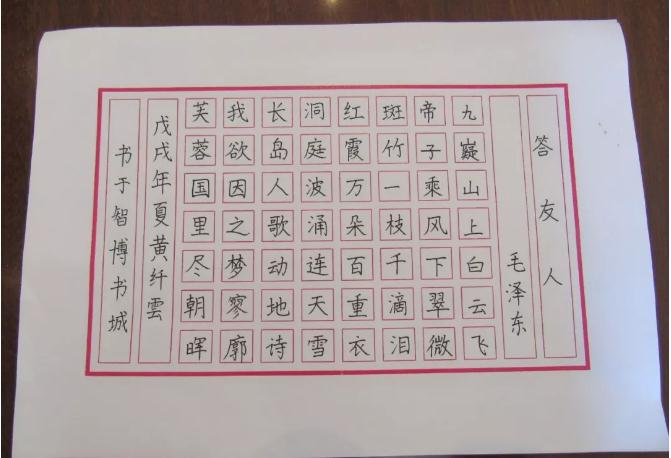 答友人
毛泽东
九嶷山上白云飞
帝子乘风下翠微
斑竹一枝千滴泪
红霞万朵百重衣
洞庭波涌连天雪
长岛人歌动地诗
我欲因之梦寥廓
芙蓉国里尽朝晖
戊戌年夏黄纤雲
书于智博书城